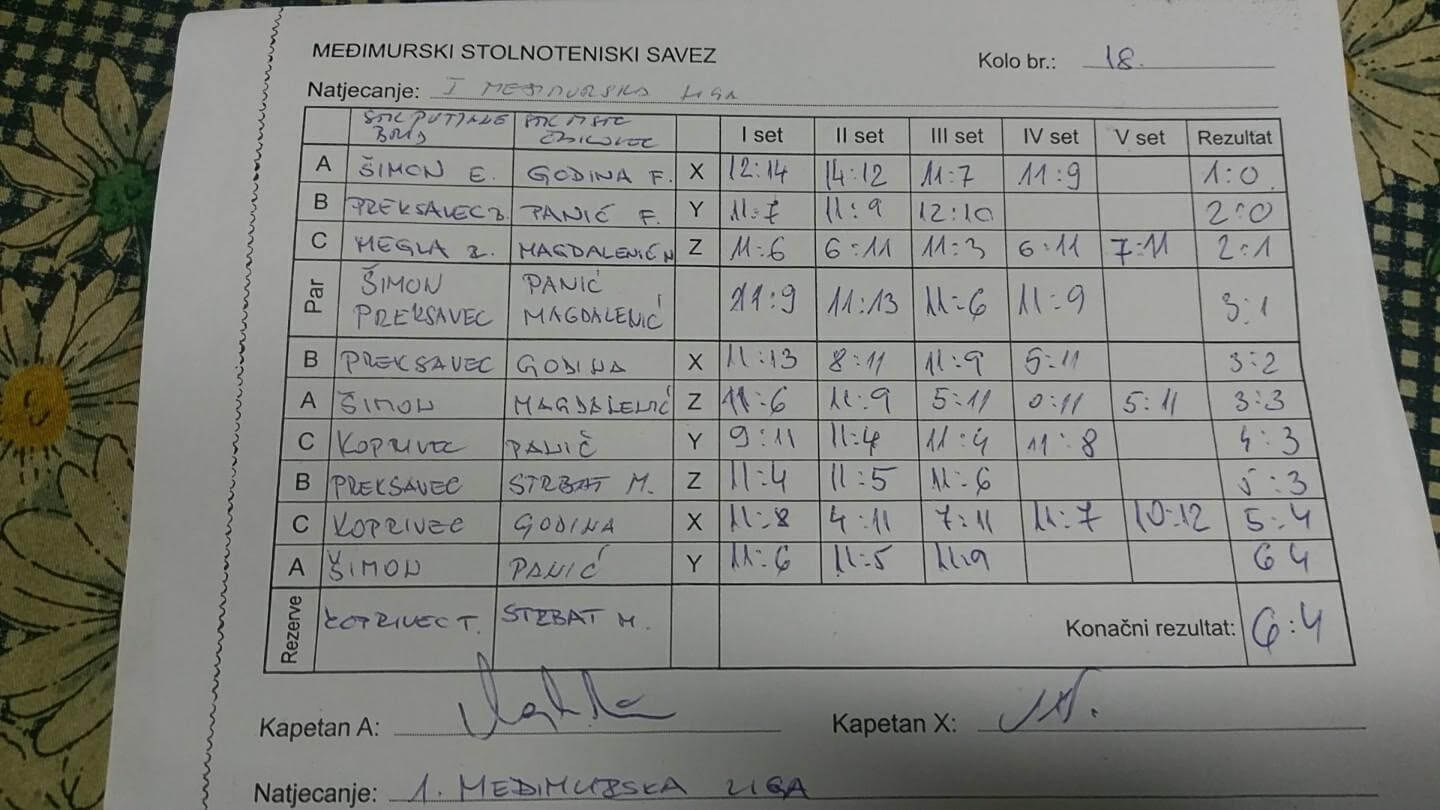 MEĐIMURSKI STOLNOTENISKI SAVEZ
Kolo br.: 18.
Natjecanje: I MEĐIMURSKA LIGA
I set II set III set IV set V set Rezultat
A ŠIMON E. GODINA F. X 12:14 14:12 11:7 11:9 1:0
B PREKSAVEC PANIĆ F. Y 11:7 11:9 12:10 2:0
C MEGLA Z. MAGDALENIĆ N Z 11:6 6:11 11:3 6:11 7:11 2:1
Par ŠIMON PANIĆ 11:9 11:13 11:6 11:9 3:1
PREKSAVEC MAGDALENIĆ
B PREKSAVEC GODINA X 11:13 8:11 11:9 5:11 3:2
A ŠIMON MAGDALENIĆ Z 11:6 11:9 5:11 0:11 5:11 3:3
C KOPRIVEC PANIĆ Y 9:11 11:4 11:4 11:8 4:3
B PREKSAVEC STRBAT M. Z 11:4 11:5 11:6 5:3
C KOPRIVEC GODINA X 11:8 4:11 7:11 11:7 10:12 5:4
A ŠIMON PANIĆ Y 11:6 11:5 11:9 6 4
Rezerve KOPRIVEC T. STRBAT M. Konačni rezultat: 6:4
Kapetan A:
Kapetan X:
Natjecanje: 1. MEĐIMURSKA LIGA